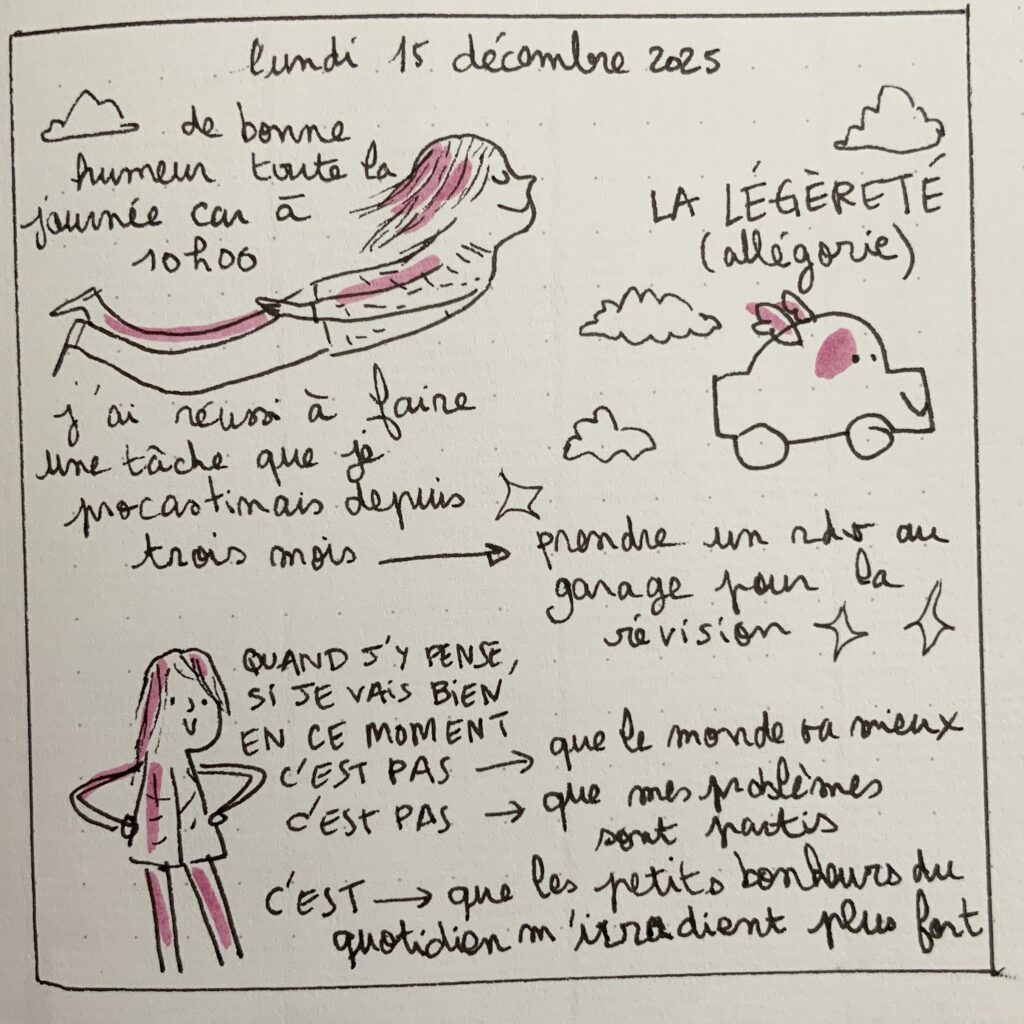 lundi 15 décembre 2025
de bonne
humeur toute la
journée car à
10h00
LA LÉGÈRETÉ
(allégorie)
j'ai réussi à faire
une tâche que je
procastinais depuis
trois mois →
prendre un rdv au
garage pour la
révision
QUAND J'Y PENSE,
SI JE VAIS BIEN
EN CE MOMENT
C'EST PAS → que le monde va mieux
C'EST PAS → que mes problèmes
sont partis
C'EST → que les petits bonheurs du
quotidien m'irradient plus fort